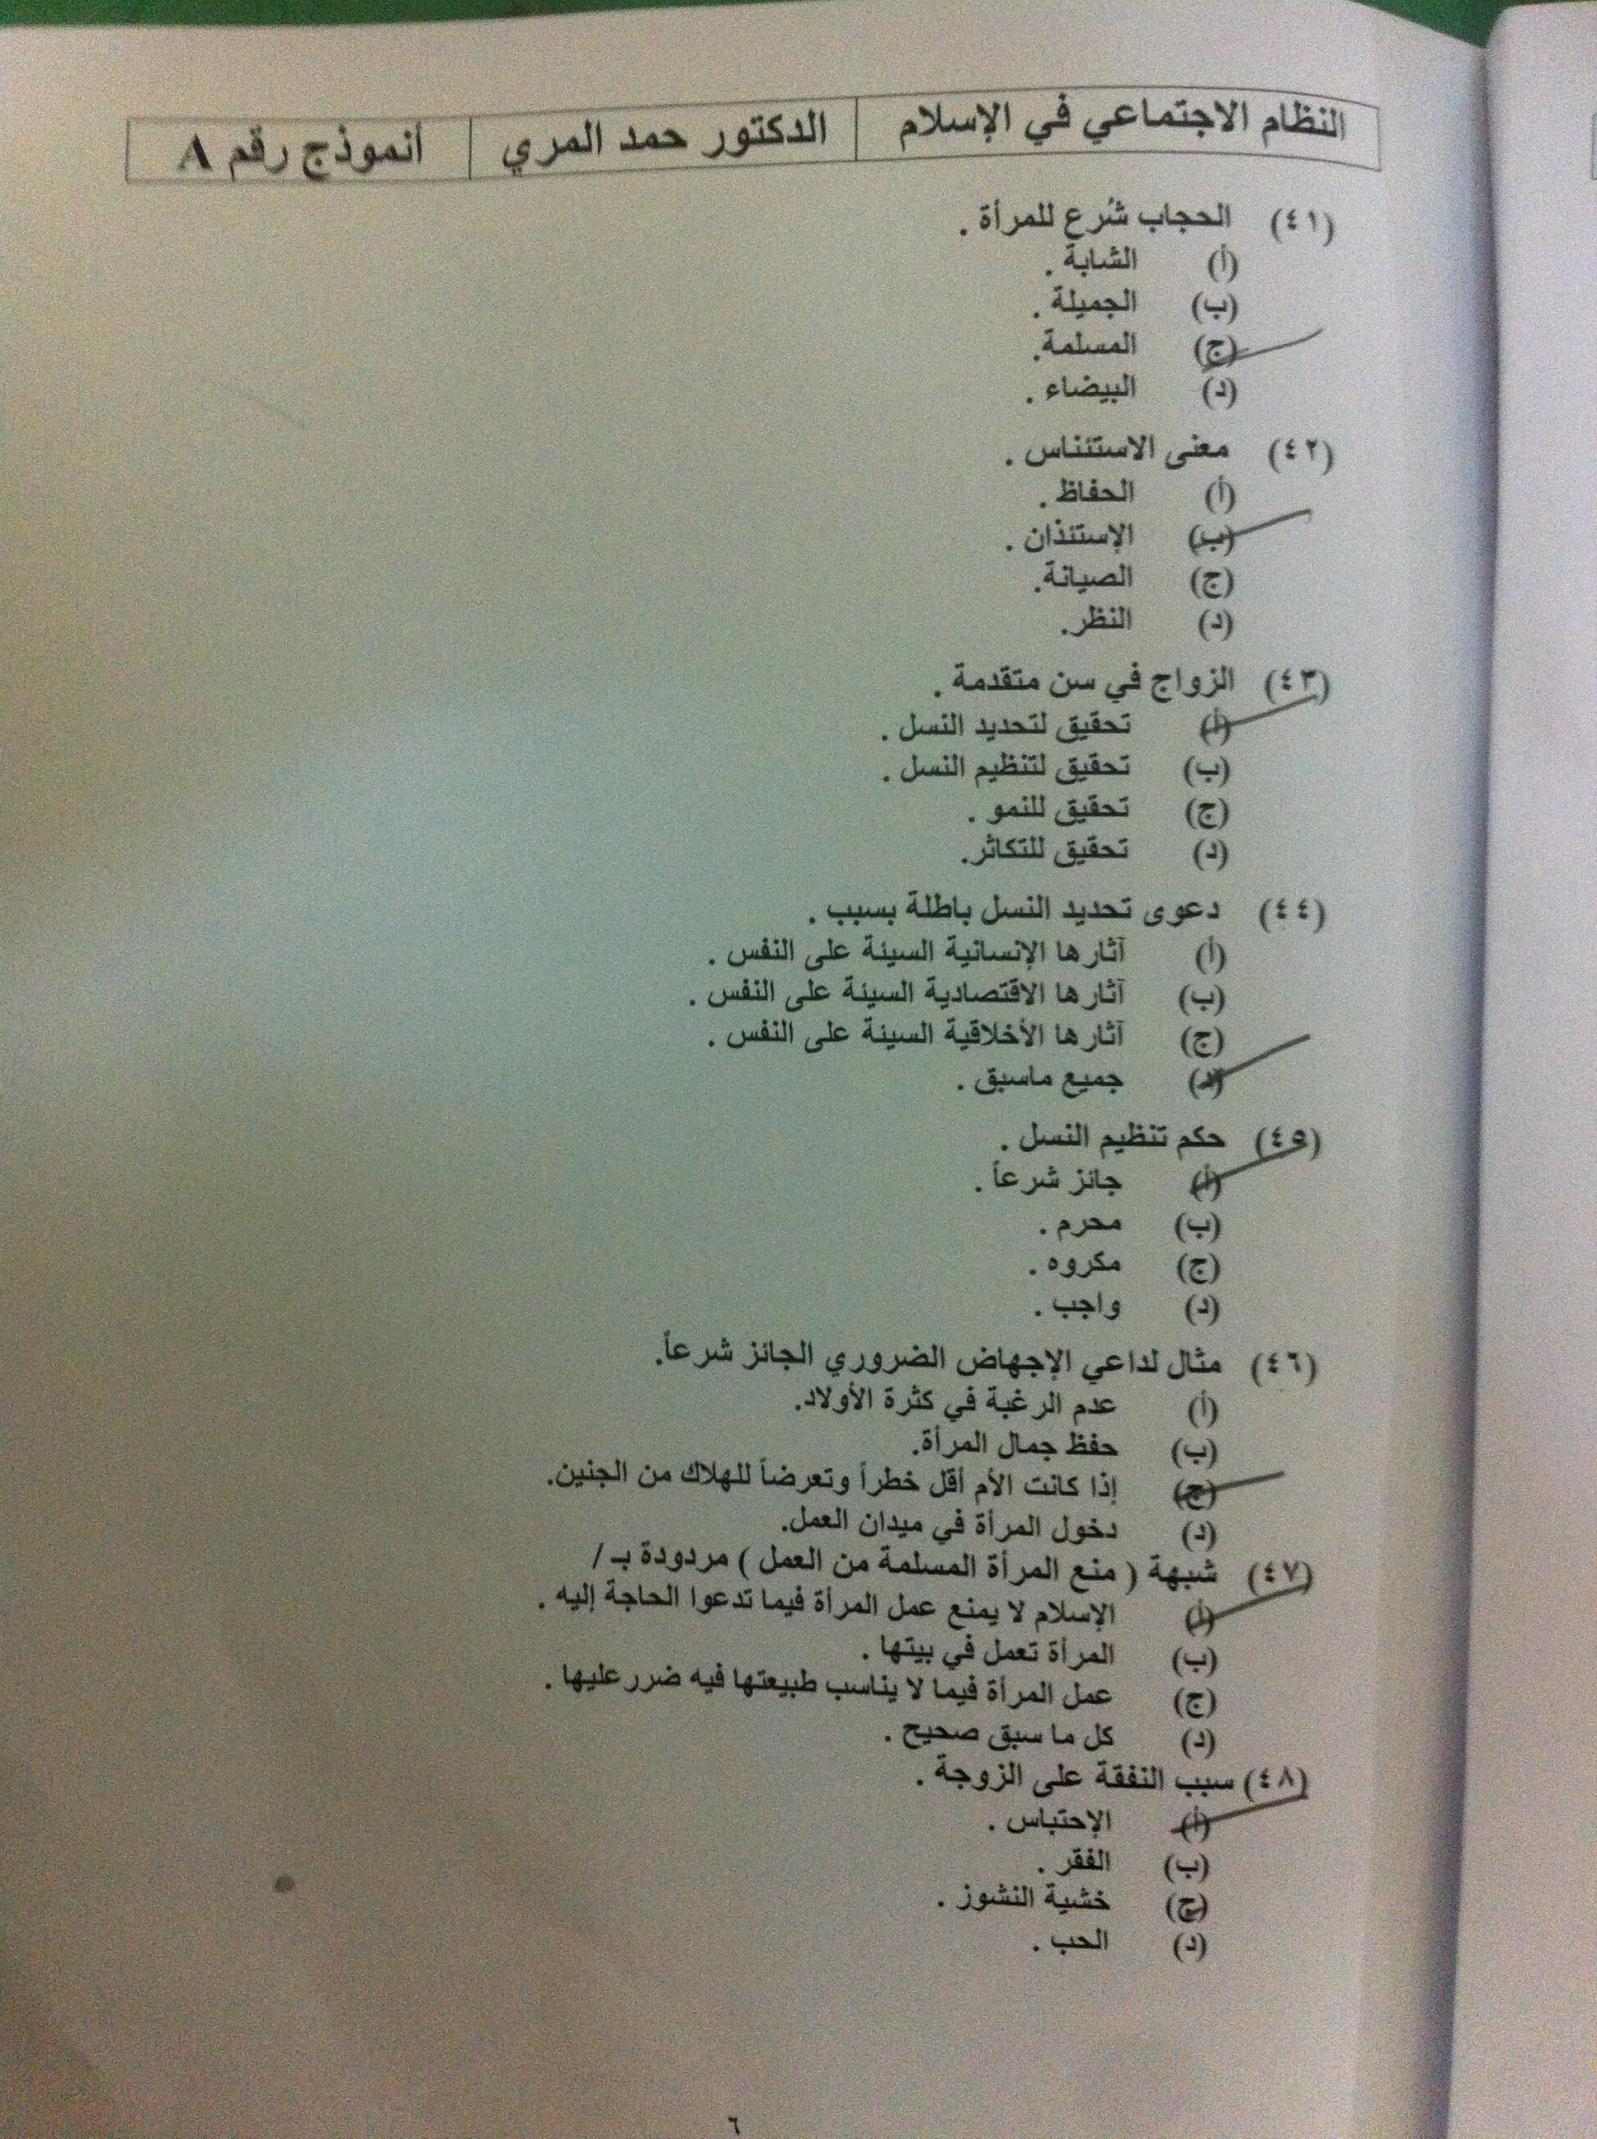 النظام الاجتماعي في الإسلام | الدكتور حمد المري | أنموذج رقم A
(٤١) الحجاب شُرع للمرأة .
(أ) الشابة .
(ب) الجميلة .
(ج) المسلمة.
(د) البيضاء .
(٤٢) معنى الاستئناس .
(أ) الحفاظ .
(ب) الإستئذان .
(ج) الصيانة.
(د) النظر.
(٤٣) الزواج في سن متقدمة .
(أ) تحقيق لتحديد النسل .
(ب) تحقيق لتنظيم النسل .
(ج) تحقيق للنمو .
(د) تحقيق للتكاثر.
(٤٤) دعوى تحديد النسل باطلة بسبب .
(أ) آثارها الإنسانية السيئة على النفس .
(ب) آثارها الاقتصادية السيئة على النفس .
(ج) آثارها الأخلاقية السيئة على النفس .
(د) جميع ماسبق .
(٤٥) حكم تنظيم النسل .
(أ) جائز شرعاً .
(ب) محرم .
(ج) مكروه .
(د) واجب .
(٤٦) مثال لداعي الإجهاض الضروري الجائز شرعاً.
(أ) عدم الرغبة في كثرة الأولاد.
(ب) حفظ جمال المرأة.
(ج) إذا كانت الأم أقل خطراً وتعرضاً للهلاك من الجنين.
(د) دخول المرأة في ميدان العمل.
(٤٧) شبهة ( منع المرأة المسلمة من العمل ) مردودة بـ /
(أ) الإسلام لا يمنع عمل المرأة فيما تدعوا الحاجة إليه .
(ب) المرأة تعمل في بيتها .
(ج) عمل المرأة فيما لا يناسب طبيعتها فيه ضرر عليها .
(د) كل ما سبق صحيح .
(٤٨) سبب النفقة على الزوجة .
(أ) الإحتباس .
(ب) الفقر .
(ج) خشية النشوز .
(د) الحب .
٦